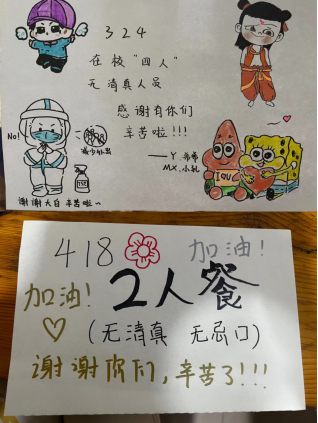 324
在校“四人”
无清真人员
感谢有你们
辛苦啦!!!
No!
减少外出
I
谢谢大白 辛苦啦~
418 加油!
加油! 2人餐
(无清真 无忌口)
谢谢你们,辛苦了!!!